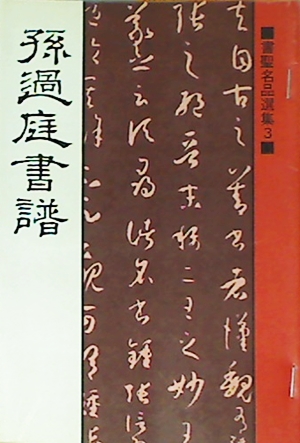 ■書聖名品選集3■
夫自古之善書者漢魏有
張之絶晋末稱二王之妙王
羲之云頃尋諸名書鍾張信
孫過庭書譜